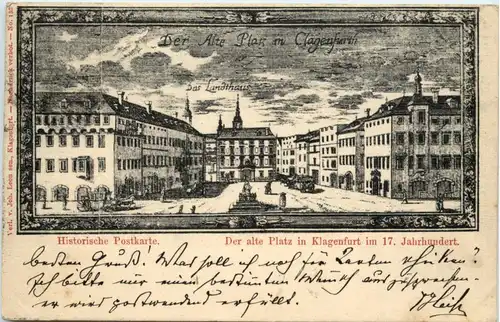 Der Alte Platz in Clagenfurt
Das Landthaus
Verl. v. Joh. Leon sen., Klagenfurt. — Nachdruck verbot. — No. 130
Historische Postkarte.
Der alte Platz in Klagenfurt im 17. Jahrhundert.
besten Gruß! Was soll ich noch für Karten schicken?
Ich bitte mir einen bestimten Wunsch auszusprechen.
er wird postwendend erfüllt.